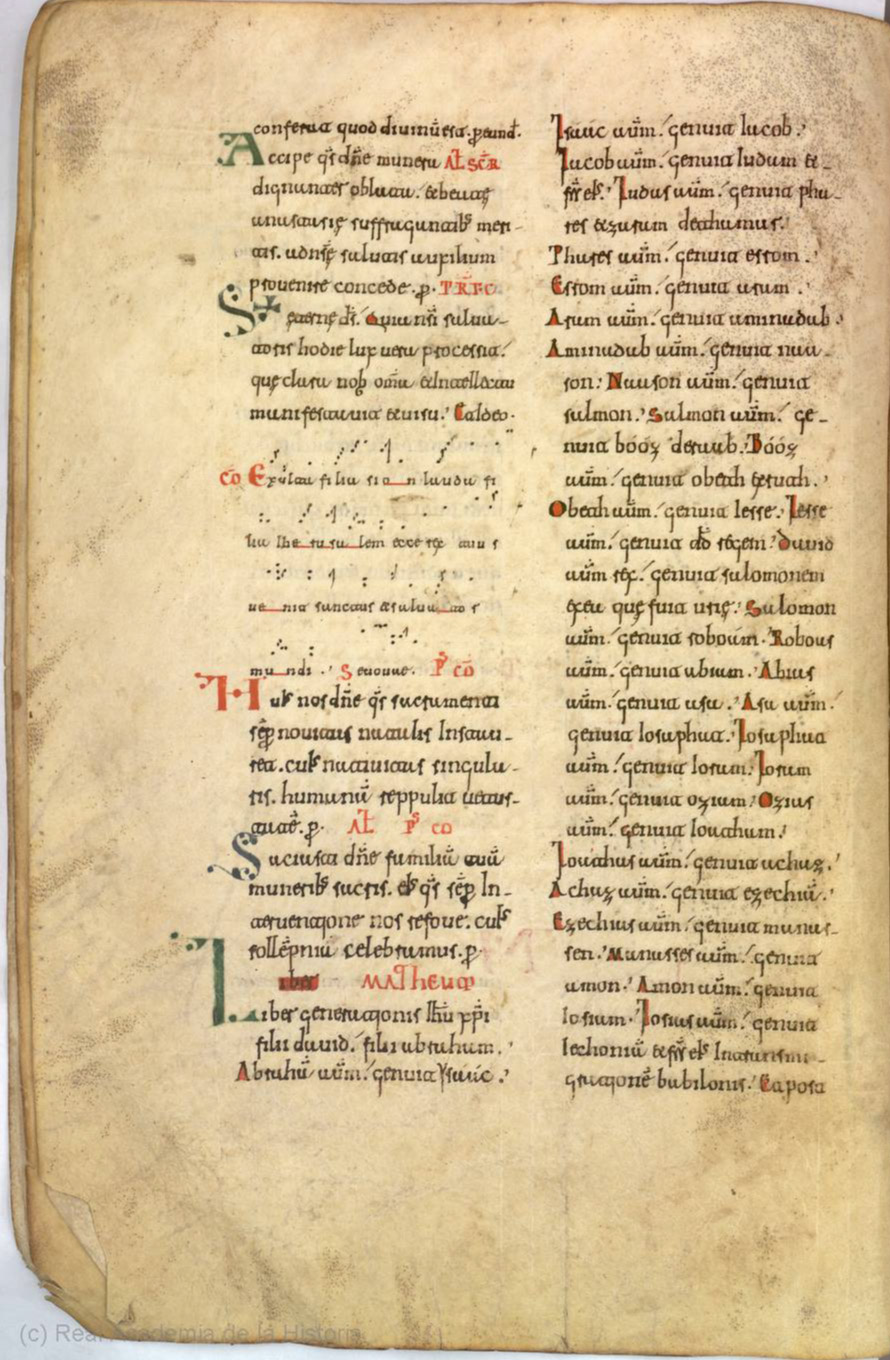 conferat quod diuinũ est. p eund̃.
Accipe q̃s dñe munera AL̃ SCR̃
dignanter oblata. & beatę
anastasię suffragantib; meri-
tis. ad nr̃ę salutis auxilium
prouenire concede. p. PR̃FC
&ernę d̃s. Quia nr̃i salua-
toris hodie lux uera processit.
que clara nob omĩa & intellectu
manifestauit & uisu. Et ideo.
cõ Exulta filia sion lauda fi
lia iherusalem ecce rex tuus
uenit sanctus & saluator
mundi. Seuouae. Ps̃ cõ
Huĩs nos dñe q̃s sacramenti
sẽp nouitas natalis instau-
ret. cuĩs natiuitas singula-
ris. humanũ reppulit uetus-
tatẽ. p. AL̃ Ps̃ co
Saciasti dñe familiã tuã
munerib; sacris. eĩs q̃s sẽp in-
teruentione nos refoue. cuĩs
sollẽpnia celebramus. p.
iber MATheum
Liber generationis ihũ xp̃i
filii dauid. filii abraham.
Abrahã aũm. genuit ysaac.
Isaac aũm. genuit iacob.
Iacob aũm. genuit iudam &
fr̃s eĩs. Iudas aũm. genuit pha-
res & zaram dethamar.
Phares aũm. genuit esrom.
Esrom aũm. genuit aram.
Aram aũm. genuit aminadab.
Aminadab aũm. genuit naa-
son. Naason aũm. genuit
salmon. Salmon aũm. ge-
nuit bóóz deraab. Bóóz
aũm. genuit obeth exruth.
Obeth aũm. genuit iesse. Iesse
aũm. genuit dd̃ regem. Dauid
aũm rex. genuit salomonem
exea quę fuit urię. Salomon
aũm. genuit roboám. Robous
aũm. genuit abiam. Abias
aũm. genuit asa. Asa aũm.
genuit iosaphat. Iosaphat
aũm. genuit ioram. Ioram
aũm. genuit oziam. Ozias
aũm. genuit ioatham.
Ioathas aũm. genuit achaz.
Achaz aũm. genuit ezechiã.
Ezechias aũm. genuit manas-
sen. Manasses aũm. genuit
amon. Amon aũm. genuit
iosiam. Iosias aũm. genuit
iechoniã & fr̃s eĩs intransmi-
gratione babilonis. Et post
(c) Real Academia de la Historia